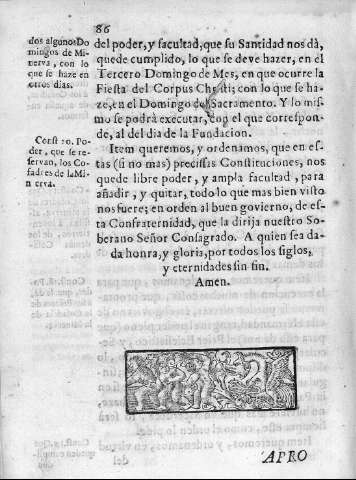 86
dos algunos Do
mingos de Mi
nerva, con lo
que se haze en
otros dias.
del poder, y facultad, que su Santidad nos dà,
quede cumplido, lo que se deve hazer, en el
Tercero Domingo de Mes, en que ocurre la
Fiesta del Corpus Christi; con lo que se ha-
ze, en el Domingo de Sacramento. Y lo mis-
mo se podrà executar, con el que correspon-
de, al del dia de la Fundacion.
Const 10. Po-
der, que se re-
servan, los Co-
fadres de la Mi-
nerva.
Item queremos, y ordenamos, que en es-
tas (si no mas) precissas Constituciones, nos
quede libre poder, y ampla facultad, para
añadir, y quitar, todo lo que mas bien visto
nos fuere; en orden al buen govierno, de es-
ta Confraternidad, que la dirija nuestro So-
berano Señor Consagrado. A quien sea da-
da honra, y gloria, por todos los siglos,
y eternidades sin fin.
Amen.
APRO